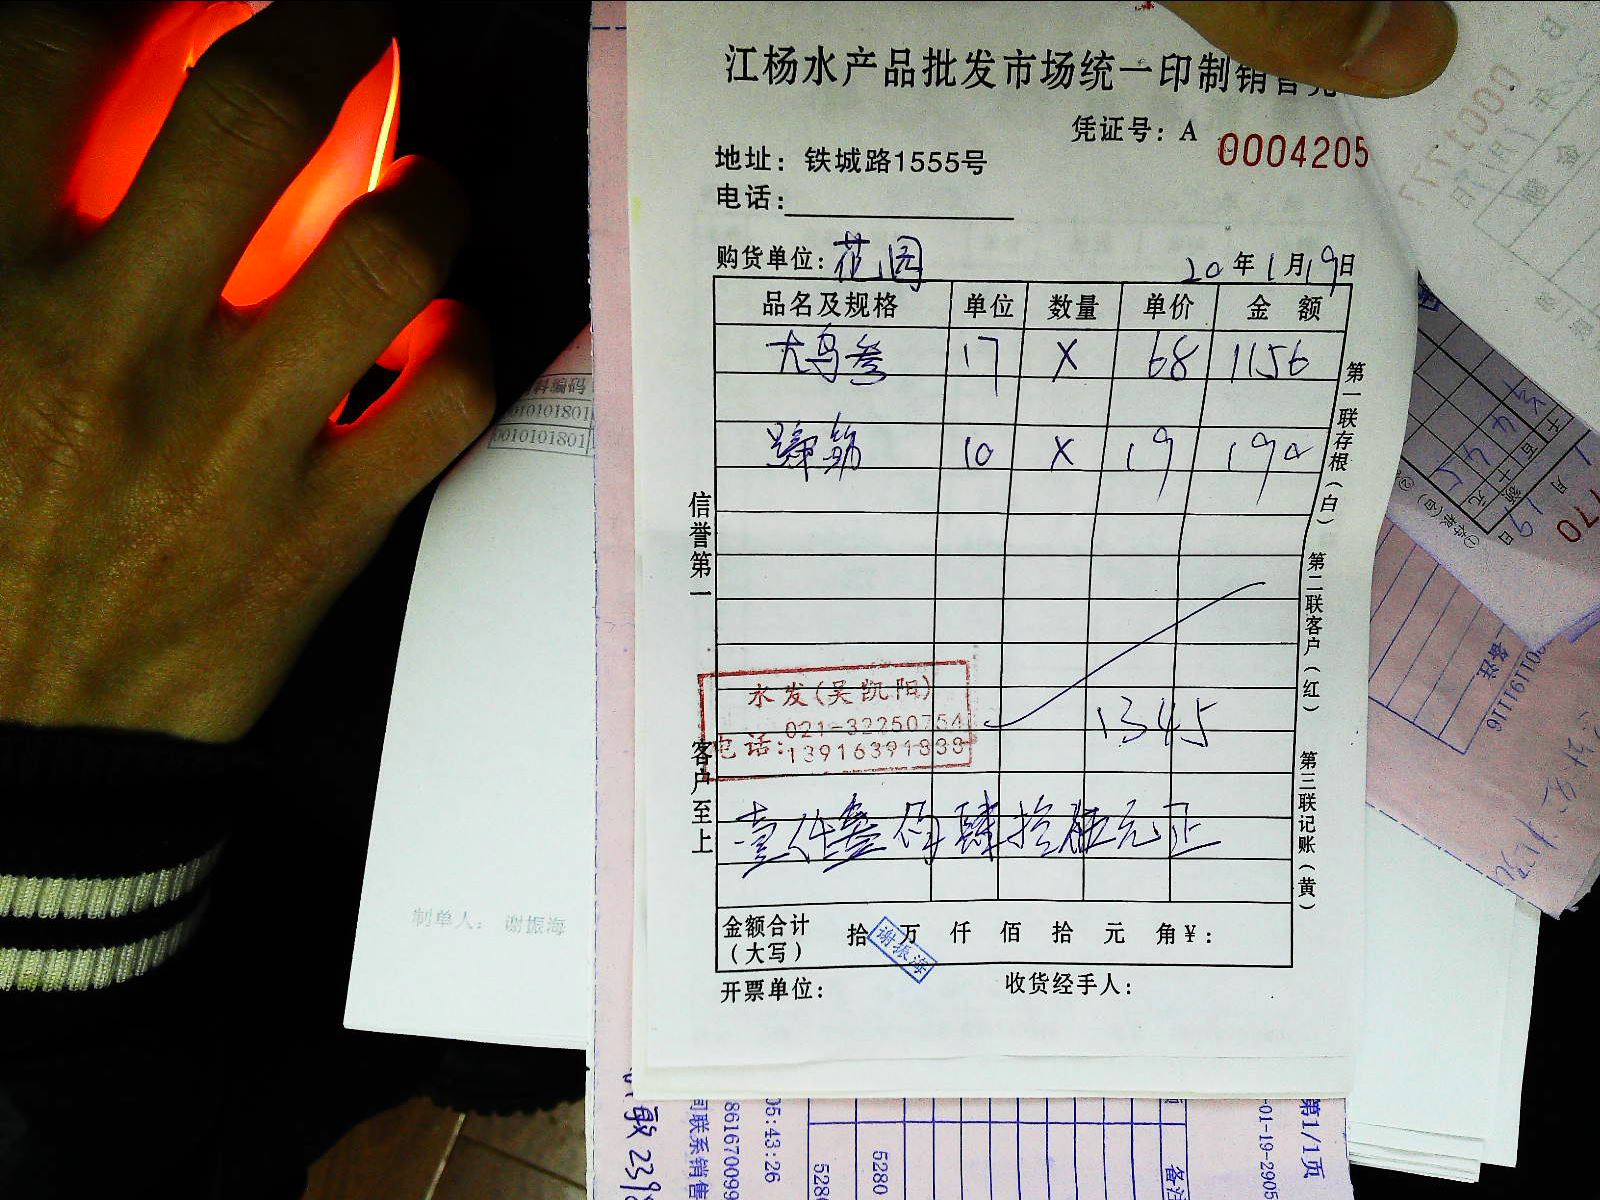 江杨水产品批发市场统一印制销售凭
凭证号：A 0004205
地址：铁城路1555号
电话：
购货单位：花园 20年1月19日
品名及规格 单位 数量 单价 金 额
大乌参 17 X 68 1156
蹄筋 10 X 19 190
1345
壹仟叁佰肆拾伍元正
金额合计（大写） 拾 万 仟 佰 拾 元 角￥：
开票单位： 收货经手人：
信誉第一
客户至上
第一联存根（白）
第二联客户（红）
第三联记账（黄）
水发(吴凯阳)
电话：021-32250754
13916391838
谢振海
制单人： 谢振海
0010101801
0010101801
备注
001191116
第1/1页
-01-19-2905
05:43:26
861670099
间联系销售
5280
528
备注